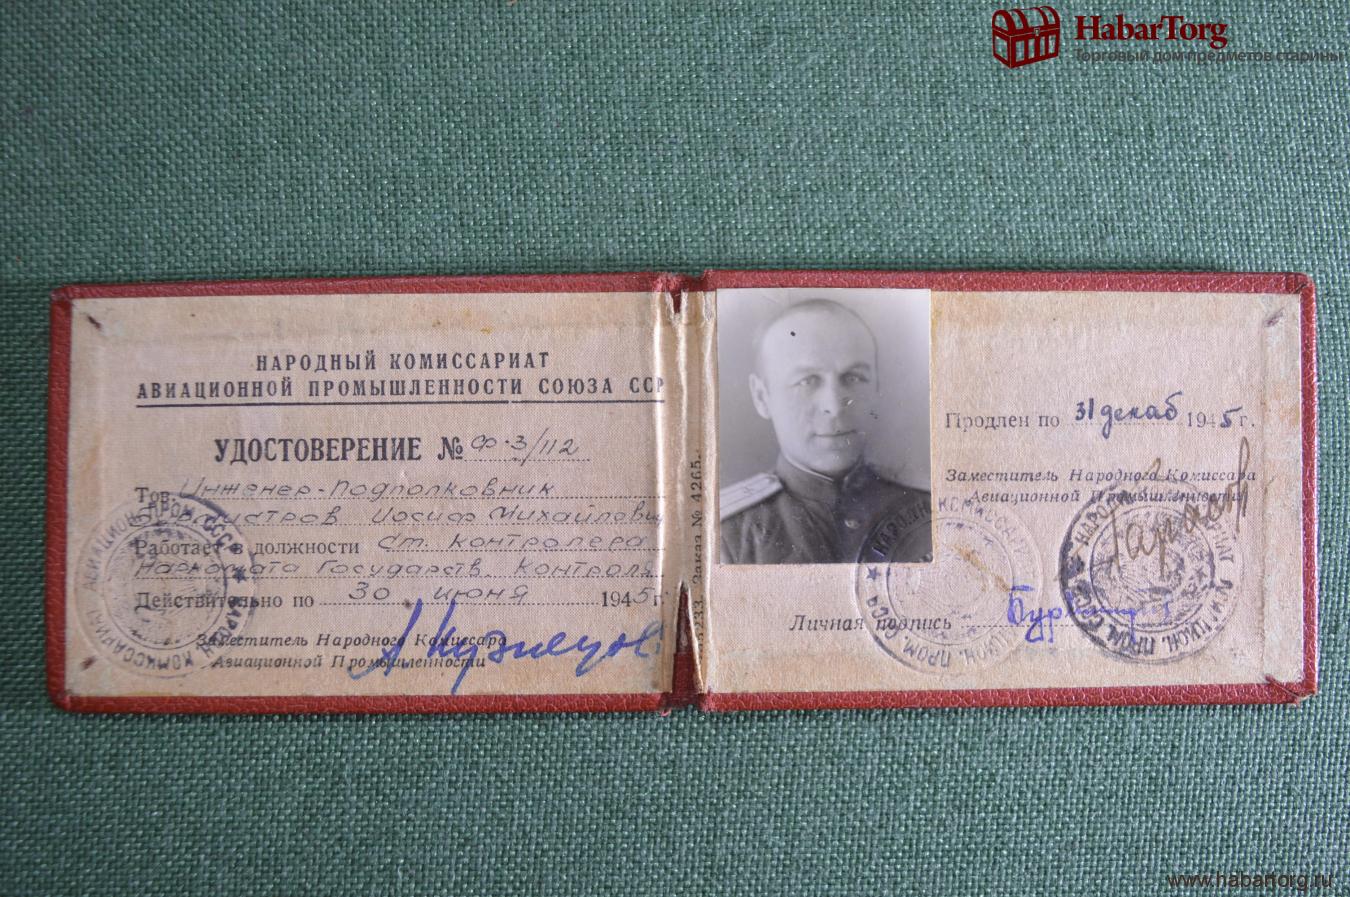 HabarTorg
Торговый дом предметов старины
НАРОДНЫЙ КОМИССАРИАТ
АВИАЦИОННОЙ ПРОМЫШЛЕННОСТИ СОЮЗА ССР
УДОСТОВЕРЕНИЕ № Ф-3/112
Тов. Инженер-Подполковник
Иосиф Михайлович
Работает в должности Ст. контролера
Наркомата Государств. Контроля
Действительно по 30 июня 1945 г.
Заместитель Народного Комиссара
Авиационной Промышленности
А Кузнецов
Заказ № 4265.
Продлен по 31 декаб 1945 г.
Заместитель Народного Комиссара
Авиационной Промышленности
Личная подпись
www.habartorg.ru